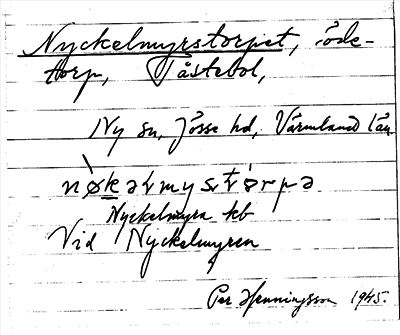 Nyckelmyrstorpet, öde-
torp, Tåstebol,
Ny sn, Jösse hd, Värmland län
Nyckelmyra tb
Vid Nyckelmyren
Per Henningsson 1945.